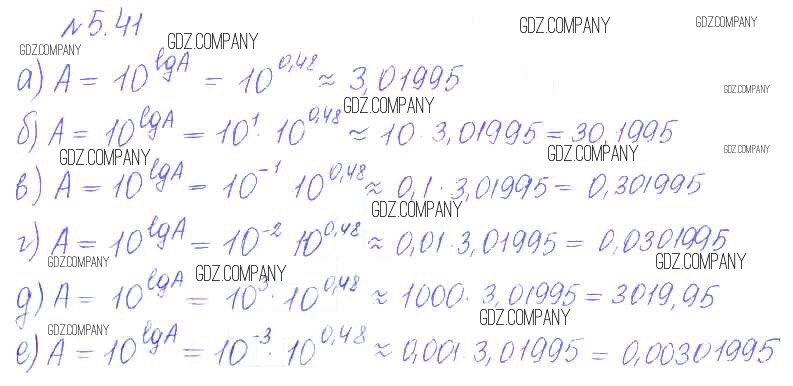 №5.41
GDZ.COMPANY GDZ.COMPANY GDZ.COMPANY GDZ.COMPANY
а) A = 10^lgA = 10^0,48 ≈ 3,01995
GDZ.COMPANY GDZ.COMPANY
б) A = 10^lgA = 10^1 · 10^0,48 ≈ 10 · 3,01995 = 30,1995
GDZ.COMPANY GDZ.COMPANY GDZ.COMPANY
в) A = 10^lgA = 10^-1 10^0,48 ≈ 0,1 · 3,01995 = 0,301995
GDZ.COMPANY
г) A = 10^lgA = 10^-2 10^0,48 ≈ 0,01 · 3,01995 = 0,0301995
GDZ.COMPANY GDZ.COMPANY GDZ.COMPANY
д) A = 10^lgA = 10^3 · 10^0,48 ≈ 1000 · 3,01995 = 3019,95
GDZ.COMPANY GDZ.COMPANY
е) A = 10^lgA = 10^-3 · 10^0,48 ≈ 0,001 · 3,01995 = 0,00301995